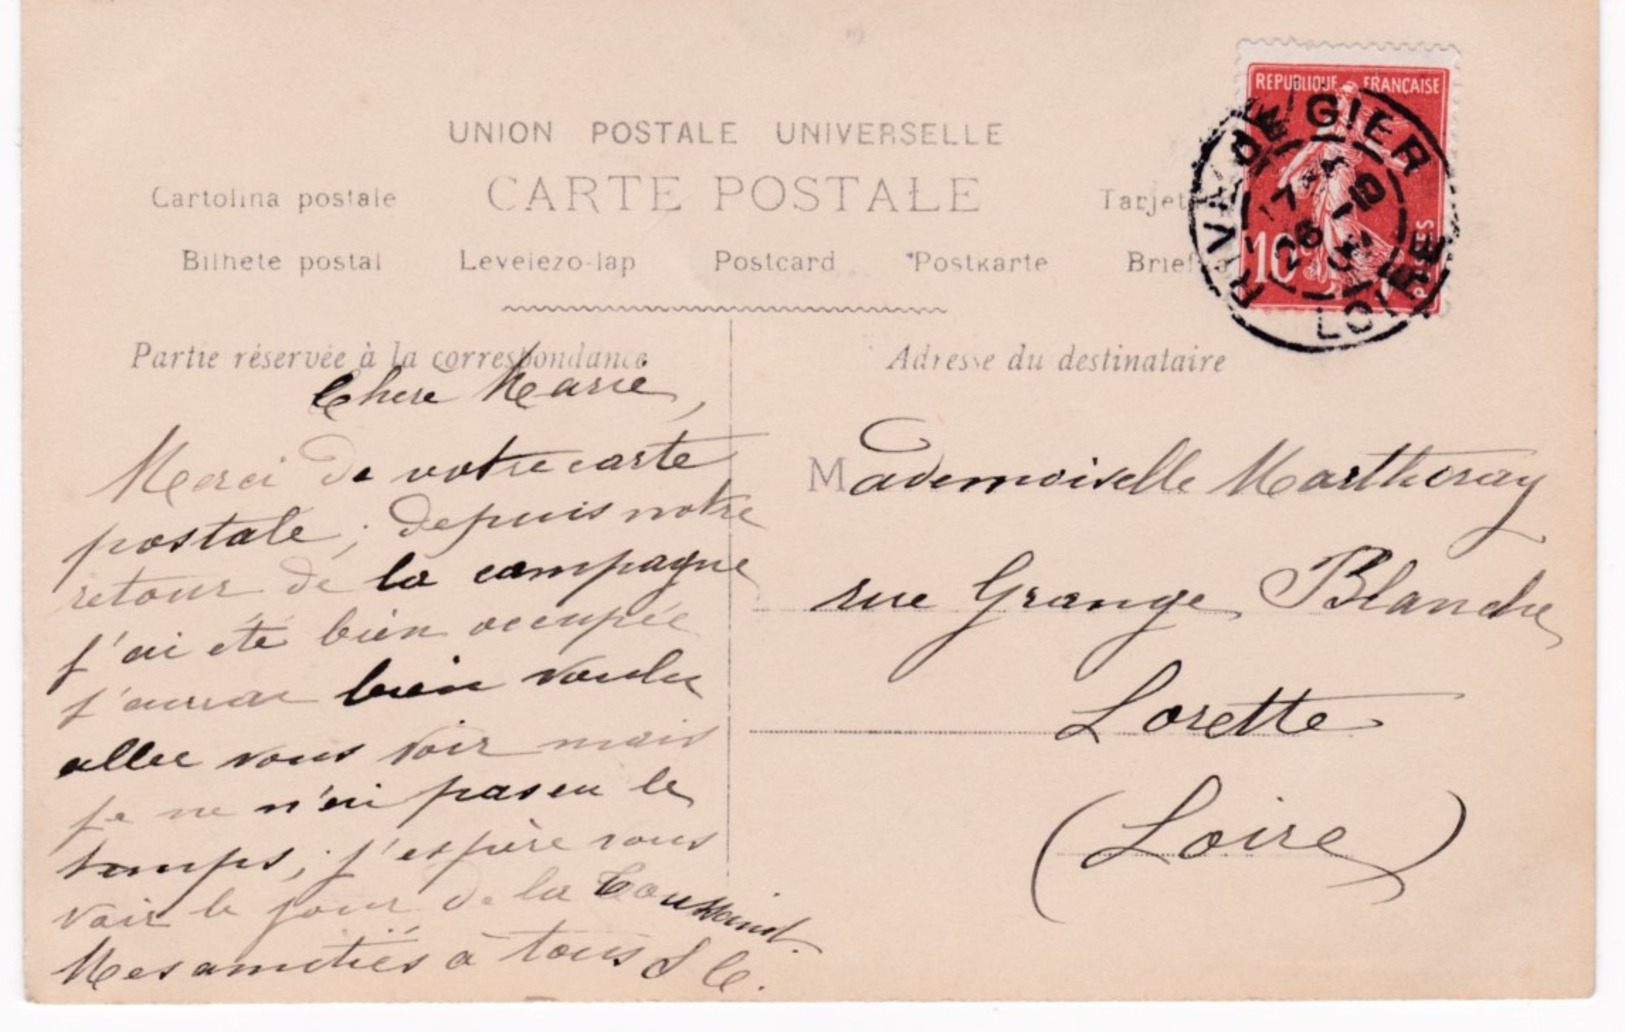 UNION POSTALE UNIVERSELLE
CARTE POSTALE
Cartolina postale
Tarjet
Bilhete postal
Levelezo-lap
Postcard
Postkarte
Brief
REPUBLIQUE FRANÇAISE
10
POSTES
RIVE DE GIER
26 -10
LOIRE
Partie réservée à la correspondance
Chere Marie,
Merci de votre carte
postale; depuis notre
retour de la campagne
j'ai été bien occupée
j'aurai bien voulu
aller vous voir mais
je ne n'ai pas eu le
temps; j'espère vous
voir le jour de la Toussaint.
Mes amitiés à tous
Adresse du destinataire
Mademoiselle Marthoray
rue Grange Blanche
Lorette
(Loire)